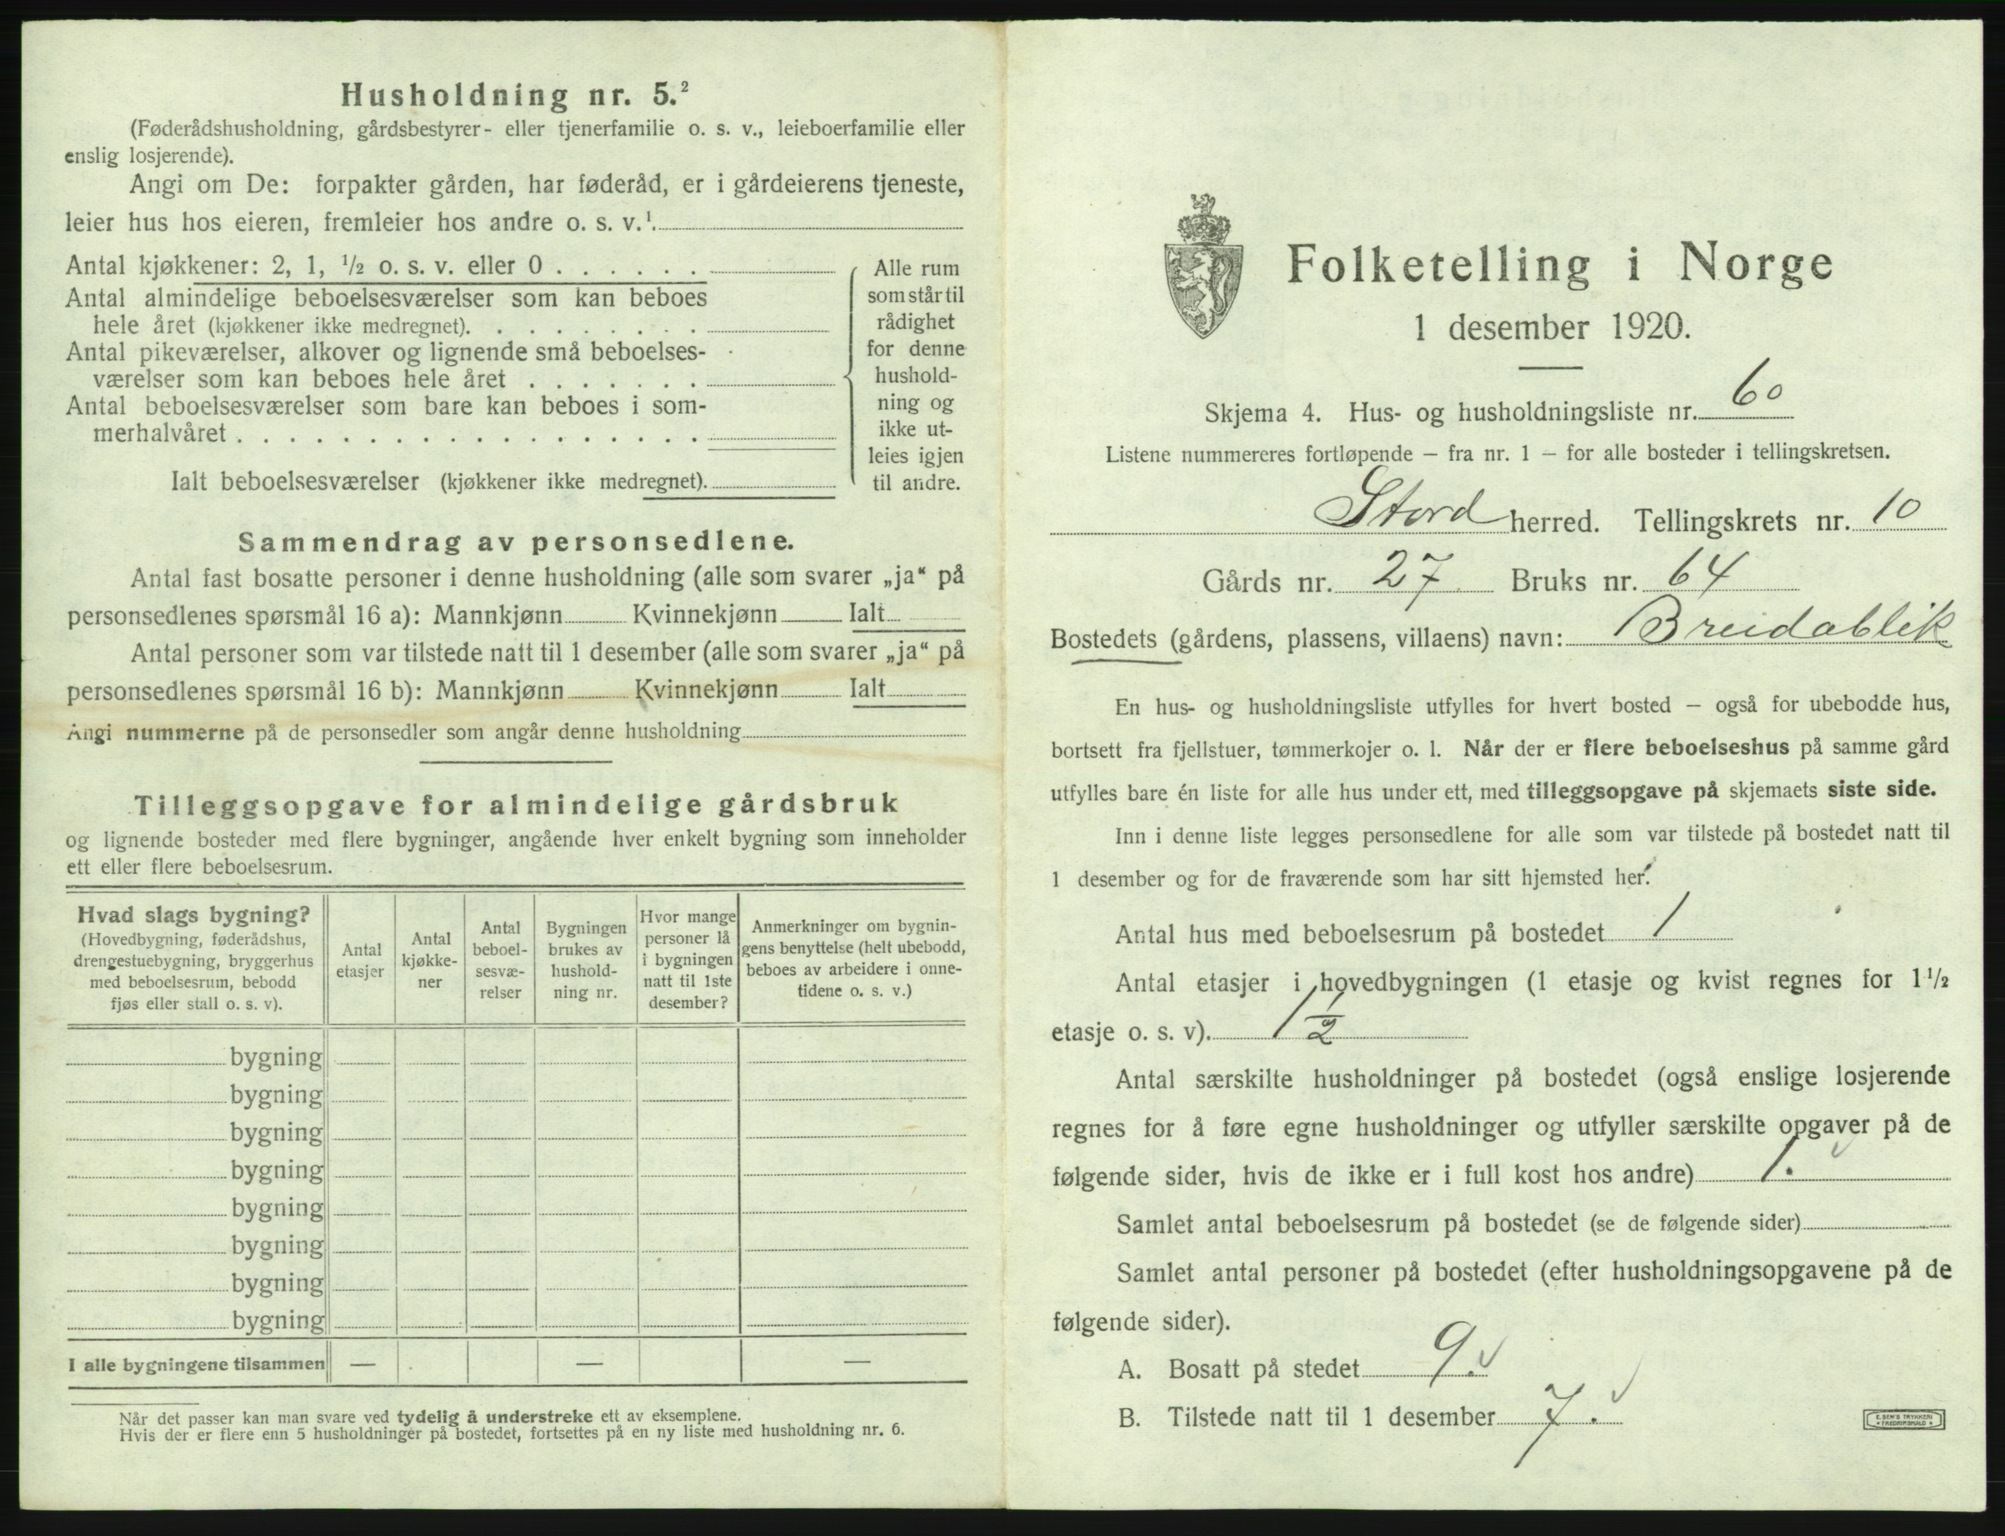 Husholdning nr. 5.²
(Føderådshusholdning, gårdsbestyrer- eller tjenerfamilie o. s. v., leieboerfamilie eller
enslig losjerende).
Angi om De: forpakter gården, har føderåd, er i gårdeierens tjeneste,
leier hus hos eieren, fremleier hos andre o. s. v.¹
Antal kjøkkener: 2, 1, ½ o. s. v. eller 0 . . . . . .
Antal almindelige beboelsesværelser som kan beboes
hele året (kjøkkener ikke medregnet). . . . . . . . .
Antal pikeværelser, alkover og lignende små beboelses-
værelser som kan beboes hele året . . . . . . .
Antal beboelsesværelser som bare kan beboes i som-
merhalvåret . . . . . . . . . . . . . . . . . .
Ialt beboelsesværelser (kjøkkener ikke medregnet).
Alle rum
som står til
rådighet
for denne
hushold-
ning og
ikke ut-
leies igjen
til andre.
Sammendrag av personsedlene.
Antal fast bosatte personer i denne husholdning (alle som svarer „ja“ på
personsedlenes spørsmål 16 a): Mannkjønn Kvinnekjønn Ialt
Antal personer som var tilstede natt til 1 desember (alle som svarer „ja“ på
personsedlenes spørsmål 16 b): Mannkjønn Kvinnekjønn Ialt
Angi nummerne på de personsedler som angår denne husholdning
Tilleggsopgave for almindelige gårdsbruk
og lignende bosteder med flere bygninger, angående hver enkelt bygning som inneholder
ett eller flere beboelsesrum.
Hvad slags bygning?
(Hovedbygning, føderådshus,
drengestuebygning, bryggerhus
med beboelsesrum, bebodd
fjøs eller stall o. s. v).
Antal
etasjer
Antal
kjøkke-
ner
Antal
beboel-
sesvæ-
relser
Bygningen
brukes av
hushold-
ning nr.
Hvor mange
personer lå
i bygningen
natt til 1ste
desember?
Anmerkninger om bygnin-
gens benyttelse (helt ubebodd,
beboes av arbeidere i onne-
tidene o. s. v.)
bygning
bygning
bygning
bygning
bygning
bygning
bygning
bygning
I alle bygningene tilsammen — — —
Når det passer kan man svare ved tydelig å understreke ett av eksemplene.
Hvis der er flere enn 5 husholdninger på bostedet, fortsettes på en ny liste med husholdning nr. 6.
Folketelling i Norge
1 desember 1920.
Skjema 4. Hus- og husholdningsliste nr. 60
Listene nummereres fortløpende – fra nr. 1 – for alle bosteder i tellingskretsen.
Stord herred. Tellingskrets nr. 10
Gårds nr. 27 Bruks nr. 64
Bostedets (gårdens, plassens, villaens) navn: Breidablik
En hus- og husholdningsliste utfylles for hvert bosted – også for ubebodde hus,
bortsett fra fjellstuer, tømmerkojer o. l. Når der er flere beboelseshus på samme gård
utfylles bare én liste for alle hus under ett, med tilleggsopgave på skjemaets siste side.
Inn i denne liste legges personsedlene for alle som var tilstede på bostedet natt til
1 desember og for de fraværende som har sitt hjemsted her.
Antal hus med beboelsesrum på bostedet 1
Antal etasjer i hovedbygningen (1 etasje og kvist regnes for 1½
etasje o. s. v). 1½
Antal særskilte husholdninger på bostedet (også enslige losjerende
regnes for å føre egne husholdninger og utfyller særskilte opgaver på de
følgende sider, hvis de ikke er i full kost hos andre) 1.
Samlet antal beboelsesrum på bostedet (se de følgende sider)
Samlet antal personer på bostedet (efter husholdningsopgavene på de
følgende sider).
A. Bosatt på stedet 9.
B. Tilstede natt til 1 desember 7.